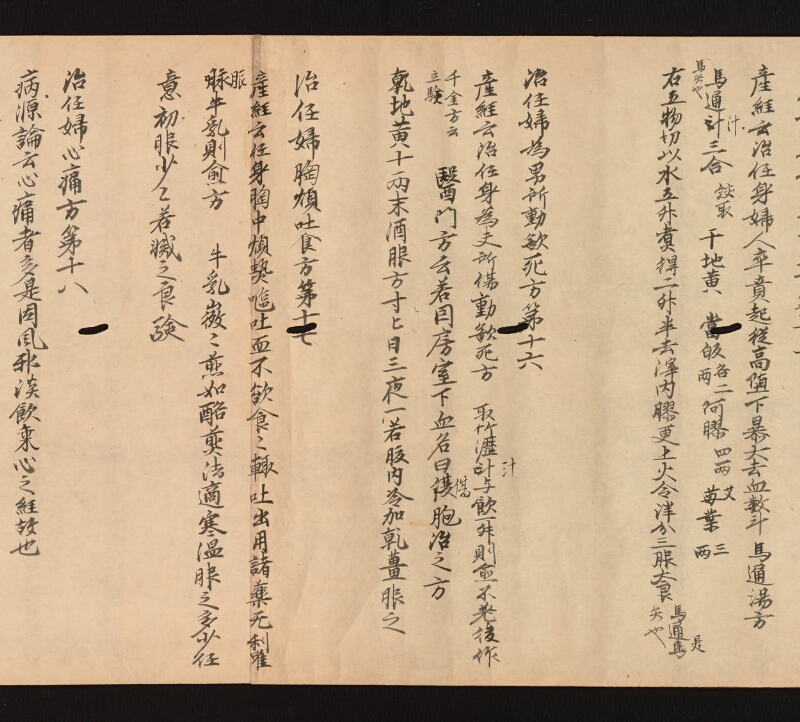 産経云治任身婦人卒賁起従高堕下暴大去血数斗 馬通湯方
馬通計三合 絞取 干地黄 當皈各二两 阿膠四两 艾葉三两
汁
馬矢也
右五物切以水五升煑得二升半去滓内膠更上火令洋分三服大良 馬通是馬矢也
治任婦為男所動欲死方第十六
産経云治任身為夫所傷動欲死方 取竹瀝計与飲一升則愈不老後作
汁
千金方云立験 醫門方云若因房室下血名曰傷胞治之方
乾地黄十两末酒服方寸匕日三夜一若腹内冷加乾薑服之
治任婦胸煩吐食方第十七
産経云任身胸中煩熱嘔吐血不欲食々輙吐出用諸藥无利唯
服牛乳則愈方 牛乳微々煎如酪煎法適寒温服之多少任
意初服少々若減之良験
治任婦心痛方第十八
病源論云心痛者多是因風邪淡飲乗心之経故也